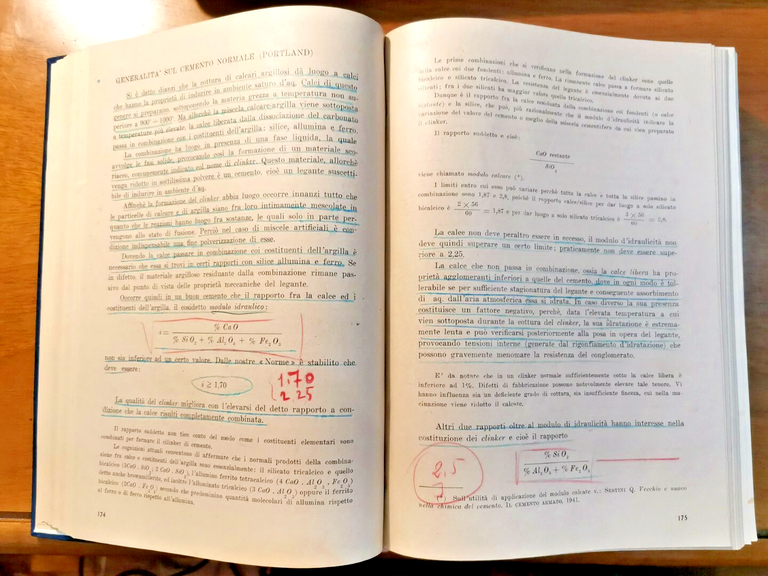 GENERALITA' SUL CEMENTO NORMALE (PORTLAND)
Si è detto dianzi che la cottura di calcari argillosi dà luogo a calci
che hanno la proprietà di indurire in ambiente saturo d'aq. Calci di questo
genere si preparano sottoponendo la materia grezza a temperatura non su-
periore a 900° - 1000°. Ma allorchè la miscela calcare-argilla viene sottoposta
a temperature più elevate, la calce liberata dalla dissociazione del carbonato
passa in combinazione con i costituenti dell'argilla: silice, allumina e ferro.
La combinazione ha luogo in presenza di una fase liquida, la quale
avvolge le fasi solide, provocando così la formazione di un materiale sco-
riaceo, comunemente indicato col nome di clinker. Questo materiale, allorchè
venga ridotto in sottilissima polvere è un cemento, cioè un legante suscetti-
bile di indurire in ambiente d'aq.
Affinchè la formazione del clinker abbia luogo occorre innanzi tutto che
le particelle di calcare e di argilla siano fra loro intimamente mescolate in
quanto che le reazioni hanno luogo fra sostanze, le quali solo in parte per-
vengono allo stato di fusione. Perciò nel caso di miscele artificiali è con-
dizione indispensabile una fine polverizzazione di esse.
Dovendo la calce passare in combinazione coi costituenti dell'argilla è
necessario che essa si trovi in certi rapporti con silice allumina e ferro. Se
in difetto, il materiale argilloso residuante dalla combinazione rimane pas-
sivo dal punto di vista delle proprietà meccaniche del legante.
Occorre quindi in un buon cemento che il rapporto fra la calce ed i
costituenti dell'argilla, il cosidetto modulo idraulico:
i = % CaO / % SiO₂ + % Al₂O₃ + % Fe₂O₃
non sia inferiore ad un certo valore. Dalle nostre « Norme » è stabilito che
deve essere:
i ≥ 1,70
1.70
2.25
La qualità del clinker migliora con l'elevarsi del detto rapporto a con-
dizione che la calce risulti completamente combinata.
Il rapporto suddetto non tien conto del modo come i costituenti elementari sono
combinati per formare il clinker di cemento.
Le cognizioni attuali consentono di affermare che i normali prodotti della combina-
zione fra calce e costituenti dell'argilla sono essenzialmente: il silicato tricalcico e quello
bicalcico (3CaO . SiO₂; 2 CaO . SiO₂), l'allumino ferrito tetracalcico (4 CaO . Al₂O₃ . Fe₂O₃)
detto anche brownmillerite, ed inoltre l'alluminato tricalcico (3 CaO . Al₂O₃) oppure il ferrito
bicalcico (2CaO . Fe₂O₃) secondo che predominino quantità molecolari di allumina rispetto
al ferro o di ferro rispetto all'allumina.
174
Le prime combinazioni che si verificano nella formazione del clinker sono quelle
della calce coi due fondenti: allumina e ferro. La rimanente calce passa a formare silicato
bicalcico e silicato tricalcico. La resistenza del legante è essenzialmente dovuta ai due
silicati; fra i due silicati ha maggior valore quello tricalcico.
Dunque è il rapporto fra la calce residuata dalla combinazione coi fondenti (o calce
restante) e la silice, che può, più razionalmente che il modulo d'idraulicità indicare la
variazione del valore del cemento o meglio della miscela cementifera da cui vien preparato
il clinker.
Il rapporto suddetto e cioè:
CaO restante / SiO₂
viene chiamato modulo calcare (*).
I limiti entro cui esso può variare perchè tutta la calce e tutta la silice passino in
combinazione sono 1,87 e 2,8, poichè il rapporto calce/silice per dar luogo a solo silicato
bicalcico è 2 × 56 / 60 = 1,87 e per dar luogo a solo silicato tricalcico è 3 × 56 / 60 = 2,8.
La calce non deve peraltro essere in eccesso, il modulo d'idraulicità non
deve quindi superare un certo limite; praticamente non deve essere supe-
riore a 2,25.
La calce che non passa in combinazione, ossia la calce libera ha pro-
prietà agglomeranti inferiori a quelle del cemento, dove in ogni modo è tol-
lerabile se per sufficiente stagionatura del legante e conseguente assorbimento
di aq. dall'aria atmosferica essa si idrata. In caso diverso la sua presenza
costituisce un fattore negativo, perchè, data l'elevata temperatura a cui
vien sottoposta durante la cottura del clinker, la sua idratazione è estrema-
mente lenta e può verificarsi posteriormente alla posa in opera del legante,
provocando tensioni interne (generate dal rigonfiamento d'idratazione) che
possono gravemente menomare la resistenza del conglomerato.
E' da notare che in un clinker normale sufficientemente cotto la calce libera è
inferiore ad 1%. Difetti di fabbricazione possono notevolmente elevare tale tenore. Vi
hanno influenza sia un deficiente grado di cottura, sia insufficiente finezza, cui nella ma-
cinazione viene ridotto il calcare.
Altri due rapporti oltre al modulo di idraulicità hanno interesse nella
costituzione dei clinker e cioè il rapporto
% SiO₂ / % Al₂O₃ + % Fe₂O₃
2.5
(*) Sull'utilità di applicazione del modulo calcare v.: SESTINI Q. Vecchio e nuovo
nella chimica del cemento. IL CEMENTO ARMATO, 1941.
175